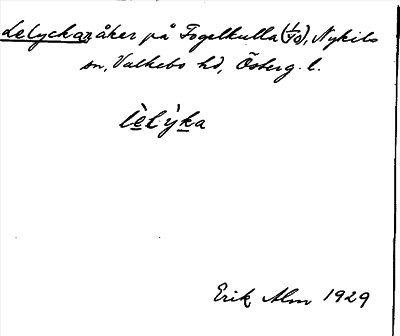 Lelyckan, åker på Fogelkulla (1/40), Nykils
sn, Valkebo hd, Österg. l.
lèlỳka
Erik Alm 1929